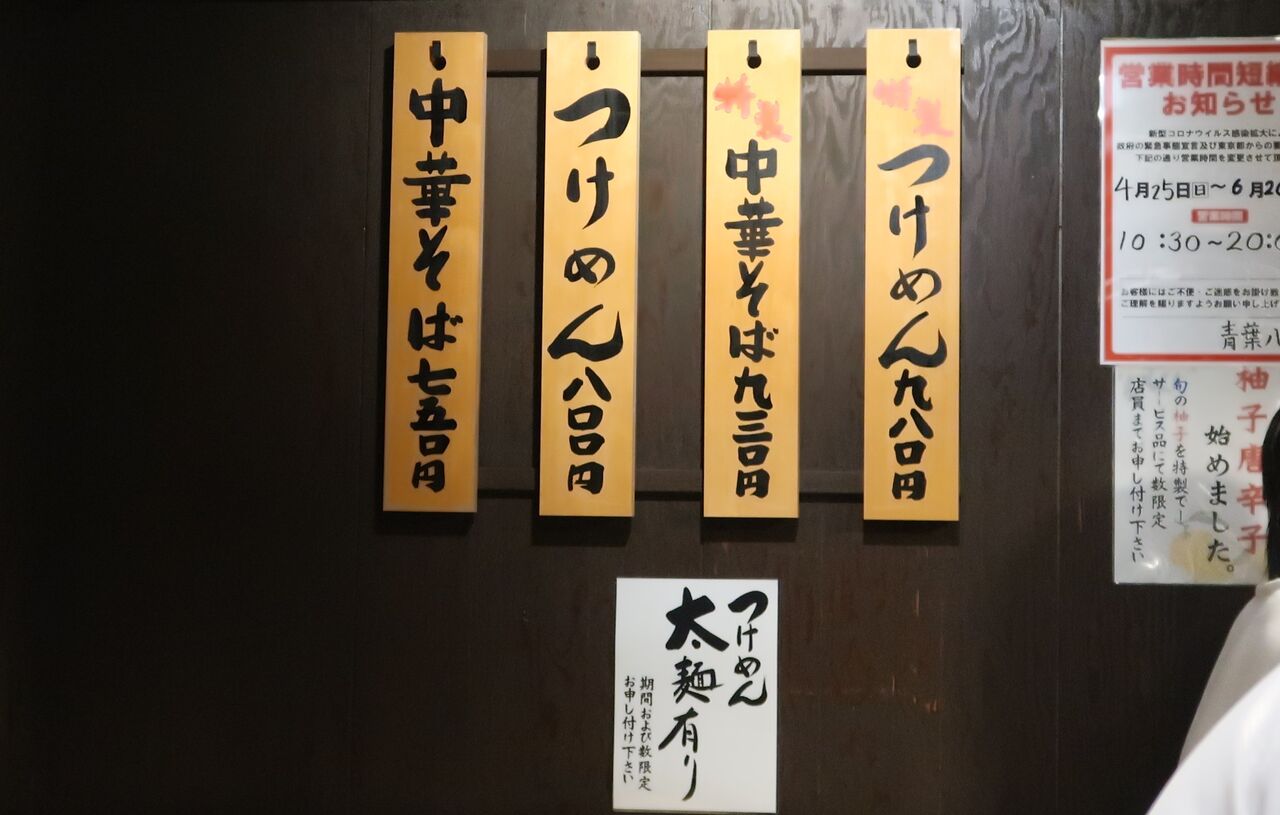 中華そば七五〇円
つけめん八〇〇円
特製
中華そば九三〇円
特製
つけめん九八〇円
つけめん
太麺有り
期間および数限定
お申し付け下さい
営業時間短縮
お知らせ
新型コロナウイルス感染拡大に
政府の緊急事態宣言及び東京都からの
下記の通り営業時間を変更させて
4月25日日～6月20
営業時間
10:30～20:0
お客様にはご不便・ご迷惑をお掛け致
ご理解を賜りますようお願い申し上げ
青葉八
柚子唐辛子
始めました。
旬の柚子を特製で
サービス品にて数限定
店員までお申し付け下さい